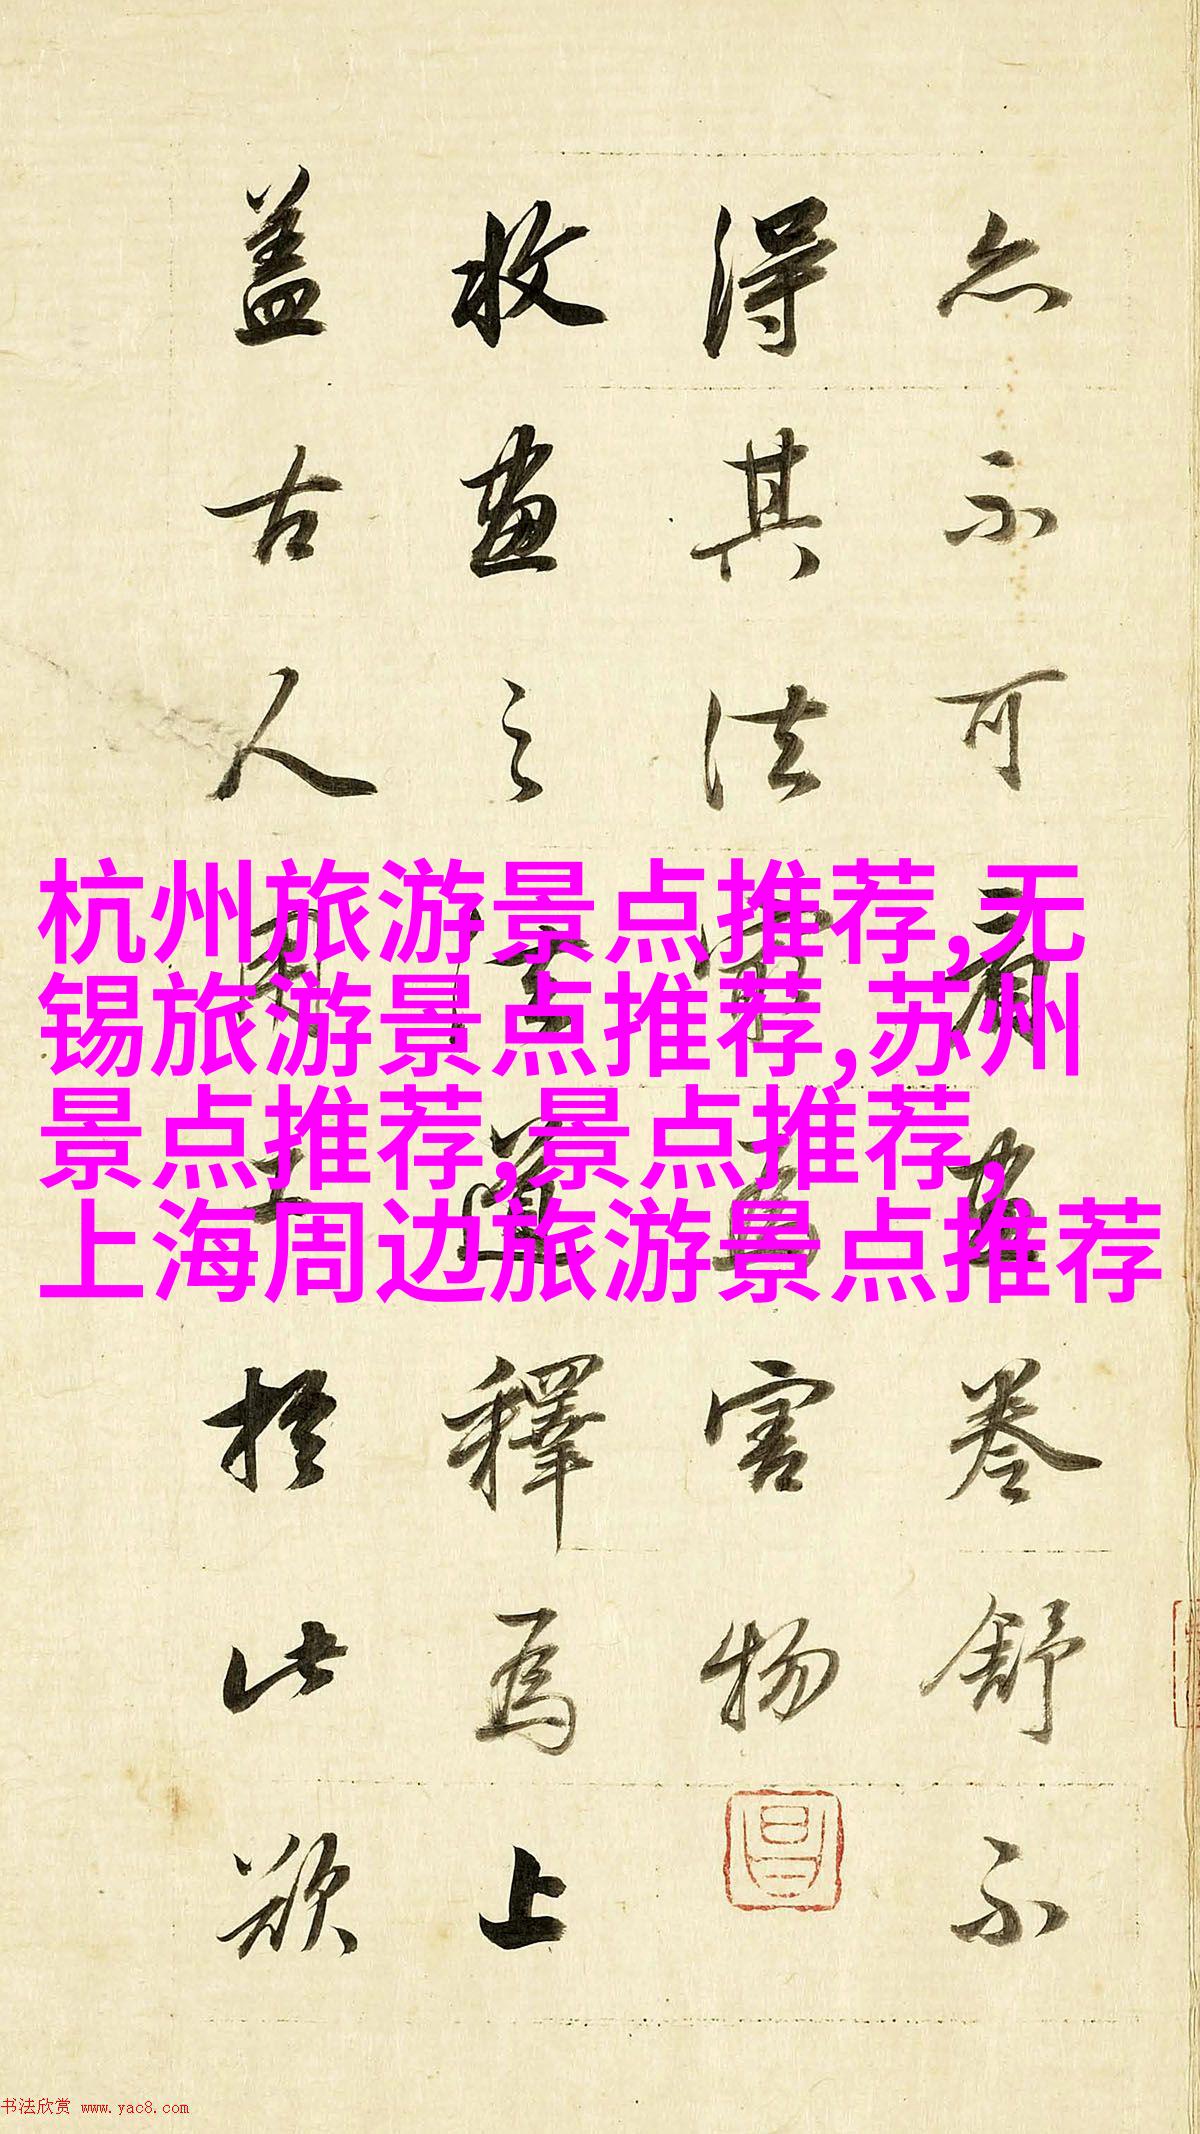 亦不可看畫卷舒不
得其法最為害物
收畫之法道釋為上
盖古人用工於此欲
杭州旅游景点推荐,无
锡旅游景点推荐,苏州
景点推荐,景点推荐,
上海周边旅游景点推荐
书法欣赏 www.yac8.com